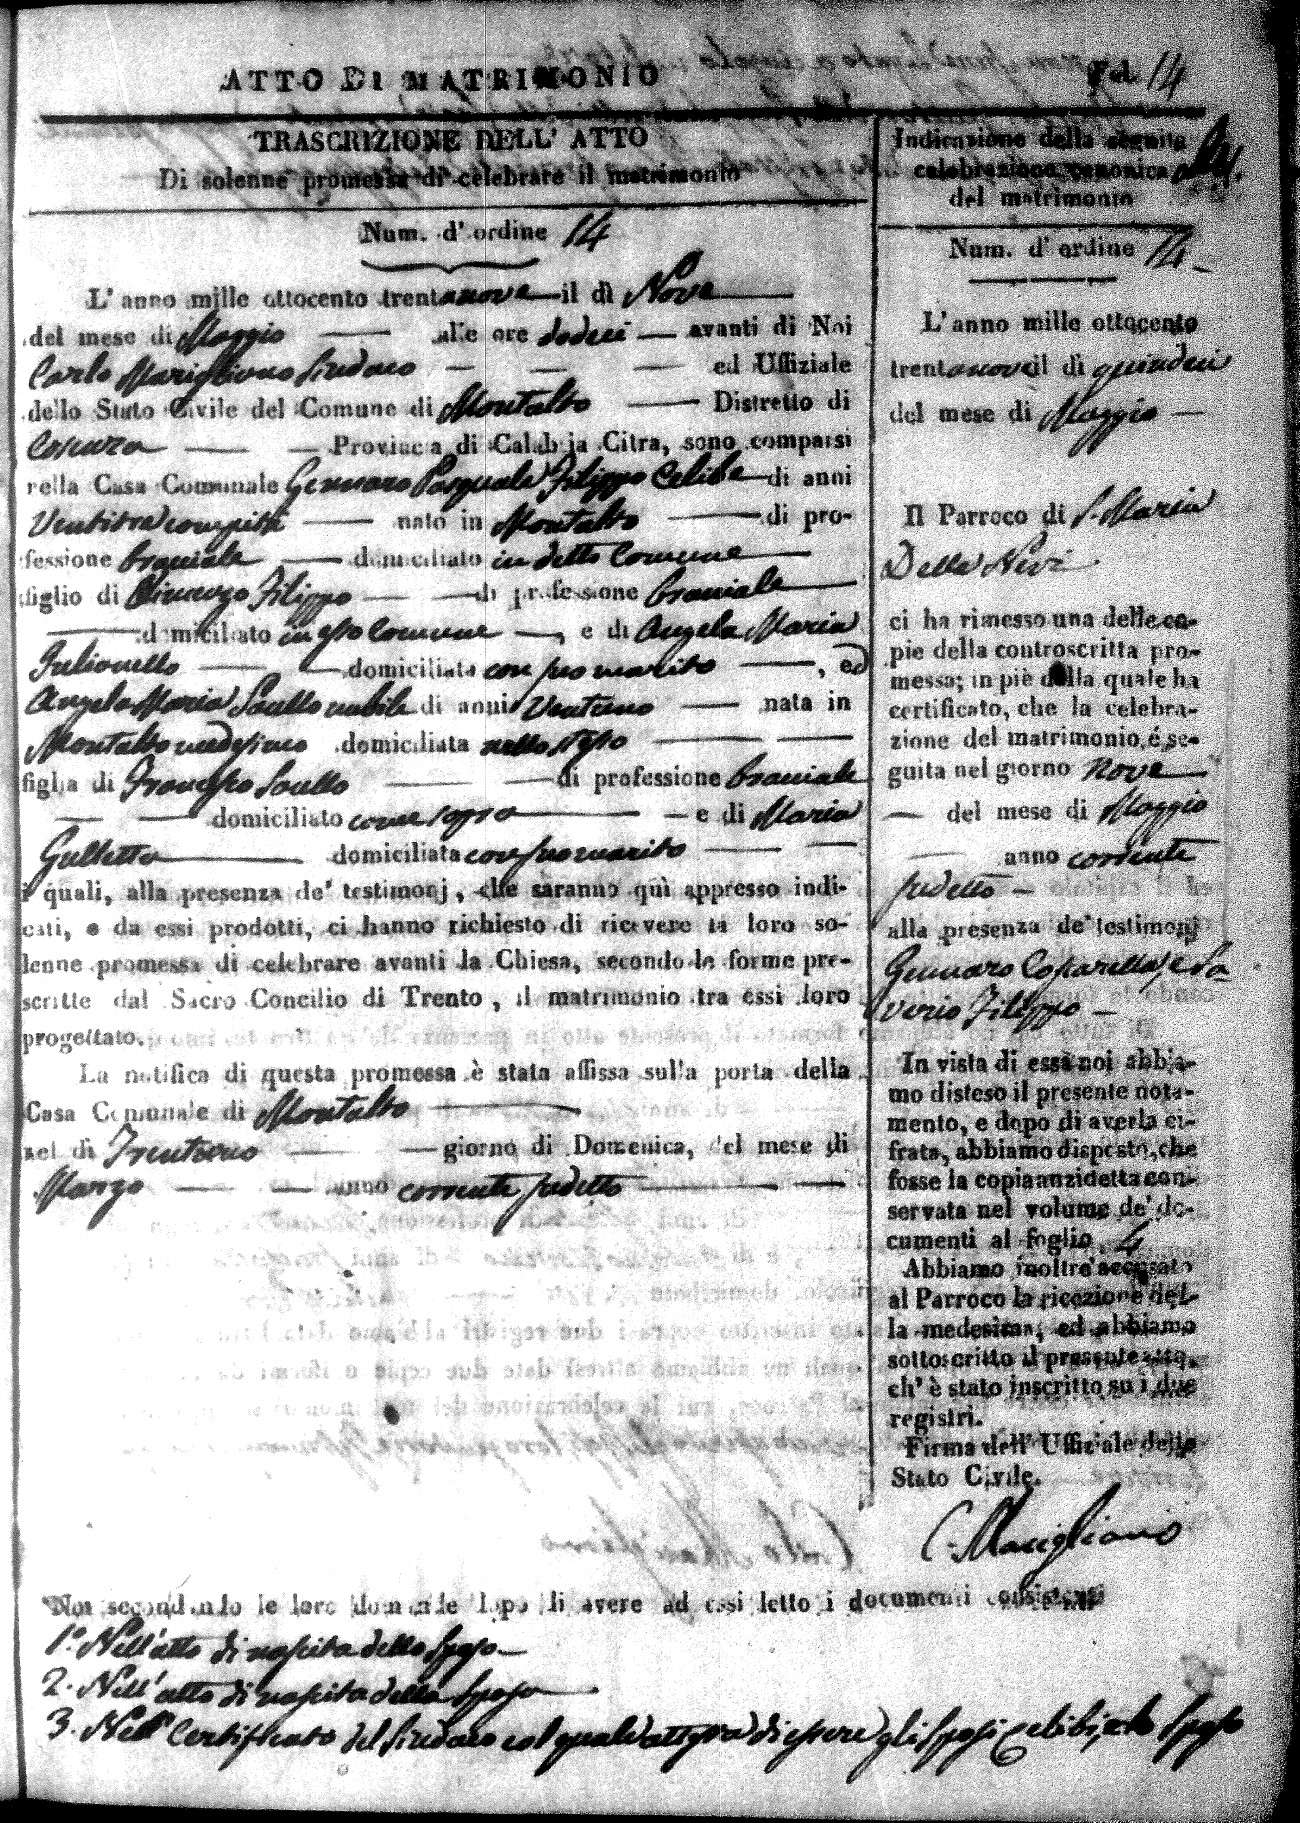 ATTO DI MATRIMONIO
Fol. 14
TRASCRIZIONE DELL' ATTO
Di solenne promessa di celebrare il matrimonio
Num. d' ordine 14
L' anno mille ottocento trentanove il dì Nove
del mese di Maggio alle ore dodeci avanti di Noi
Carlo Marigliano Sindaco ed Uffiziale
dello Stato Civile del Comune di Montalto Distretto di
Cosenza Provincia di Calabria Citra, sono comparsi
nella Casa Comunale Gennaro Pasquale Filippo Celibe di anni
Ventitre compiti nato in Montalto di pro-
fessione braciale domiciliato in detto Comune
figlio di Filippo di professione braciale
domiciliato in qsto Comune, e di Angela Maria
domiciliata con suo marito, ed
Angela Maria Saullo nubile di anni Ventuno nata in
Montalto medesimo domiciliata nello stesso
figlia di Francesco Saullo di professione braciale
domiciliato come sopra e di Maria
domiciliata con suo marito
i quali, alla presenza de' testimonj, che saranno quì appresso indi-
cati, e da essi prodotti, ci hanno richiesto di ricevere la loro so-
lenne promessa di celebrare avanti la Chiesa, secondo le forme pre-
scritte dal Sacro Concilio di Trento, il matrimonio tra essi loro
progettato.
La notifica di questa promessa è stata affissa sulla porta della
Casa Comunale di Montalto
nel dì Trentuno giorno di Domenica, del mese di
Marzo anno corrente sudetto
Indicazione della seguita
celebrazione canonica
del matrimonio
Num. d' ordine 14
L' anno mille ottocento
trentanove il dì quindeci
del mese di Maggio
Il Parroco di S. Maria
Della Nevi
ci ha rimesso una delle co-
pie della controscritta pro-
messa; in piè della quale ha
certificato, che la celebra-
zione del matrimonio, è se-
guita nel giorno Nove
del mese di Maggio
anno corrente
sudetto
alla presenza de' testimonj
Gennaro Coscarella, e Sa-
verio Filippo
In vista di essa noi abbia-
mo disteso il presente nota-
mento, e dopo di averla ci-
frata, abbiamo disposto, che
fosse la copia anzidetta con-
servata nel volume de' do-
cumenti al foglio 4
Abbiamo inoltre accusato
al Parroco la ricezione del-
la medesima, ed abbiamo
sottoscritto il presente atto,
ch' è stato inscritto su i due
registri.
Firma dell' Uffiziale dello
Stato Civile.
C. Marigliano
Noi secondando le loro domande dopo di avere ad essi letto i documenti consistenti
1.° Nell'atto di nascita dello Sposo
2. Nell' atto di nascita della Sposa
3. Nell Certificato del Sindaco col quale attesta di essere gli Sposi Celibi, e lo Sposo